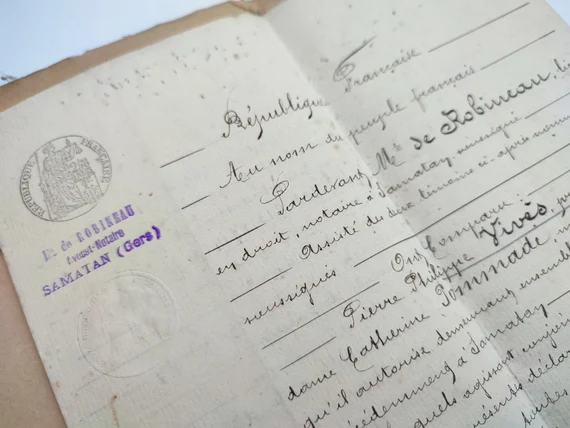 RÉPUBLIQUE FRANÇAISE
Me de ROBINEAU
Avocat-Notaire
SAMATAN (Gers)
République Française
Au nom du peuple français
Pardevant Me de Robineau,
en droit, notaire à Samatan soussigné
Assisté des deux témoins ci-après nommés
soussignés
Ont Comparu:
Pierre Philippe Vivés,
dame Catherine Pommade
qu'il autorise demeurant ensemble
précédemment à Samatan
lesquels agissant conjoin
présentes déclar
toutes